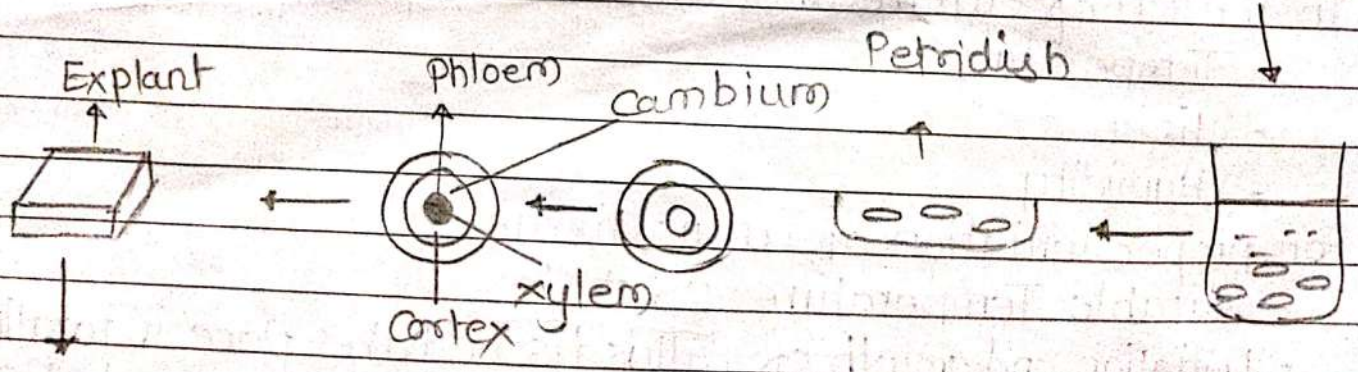 Explant
Phloem
Cambium
Petridish
xylem
Cortex